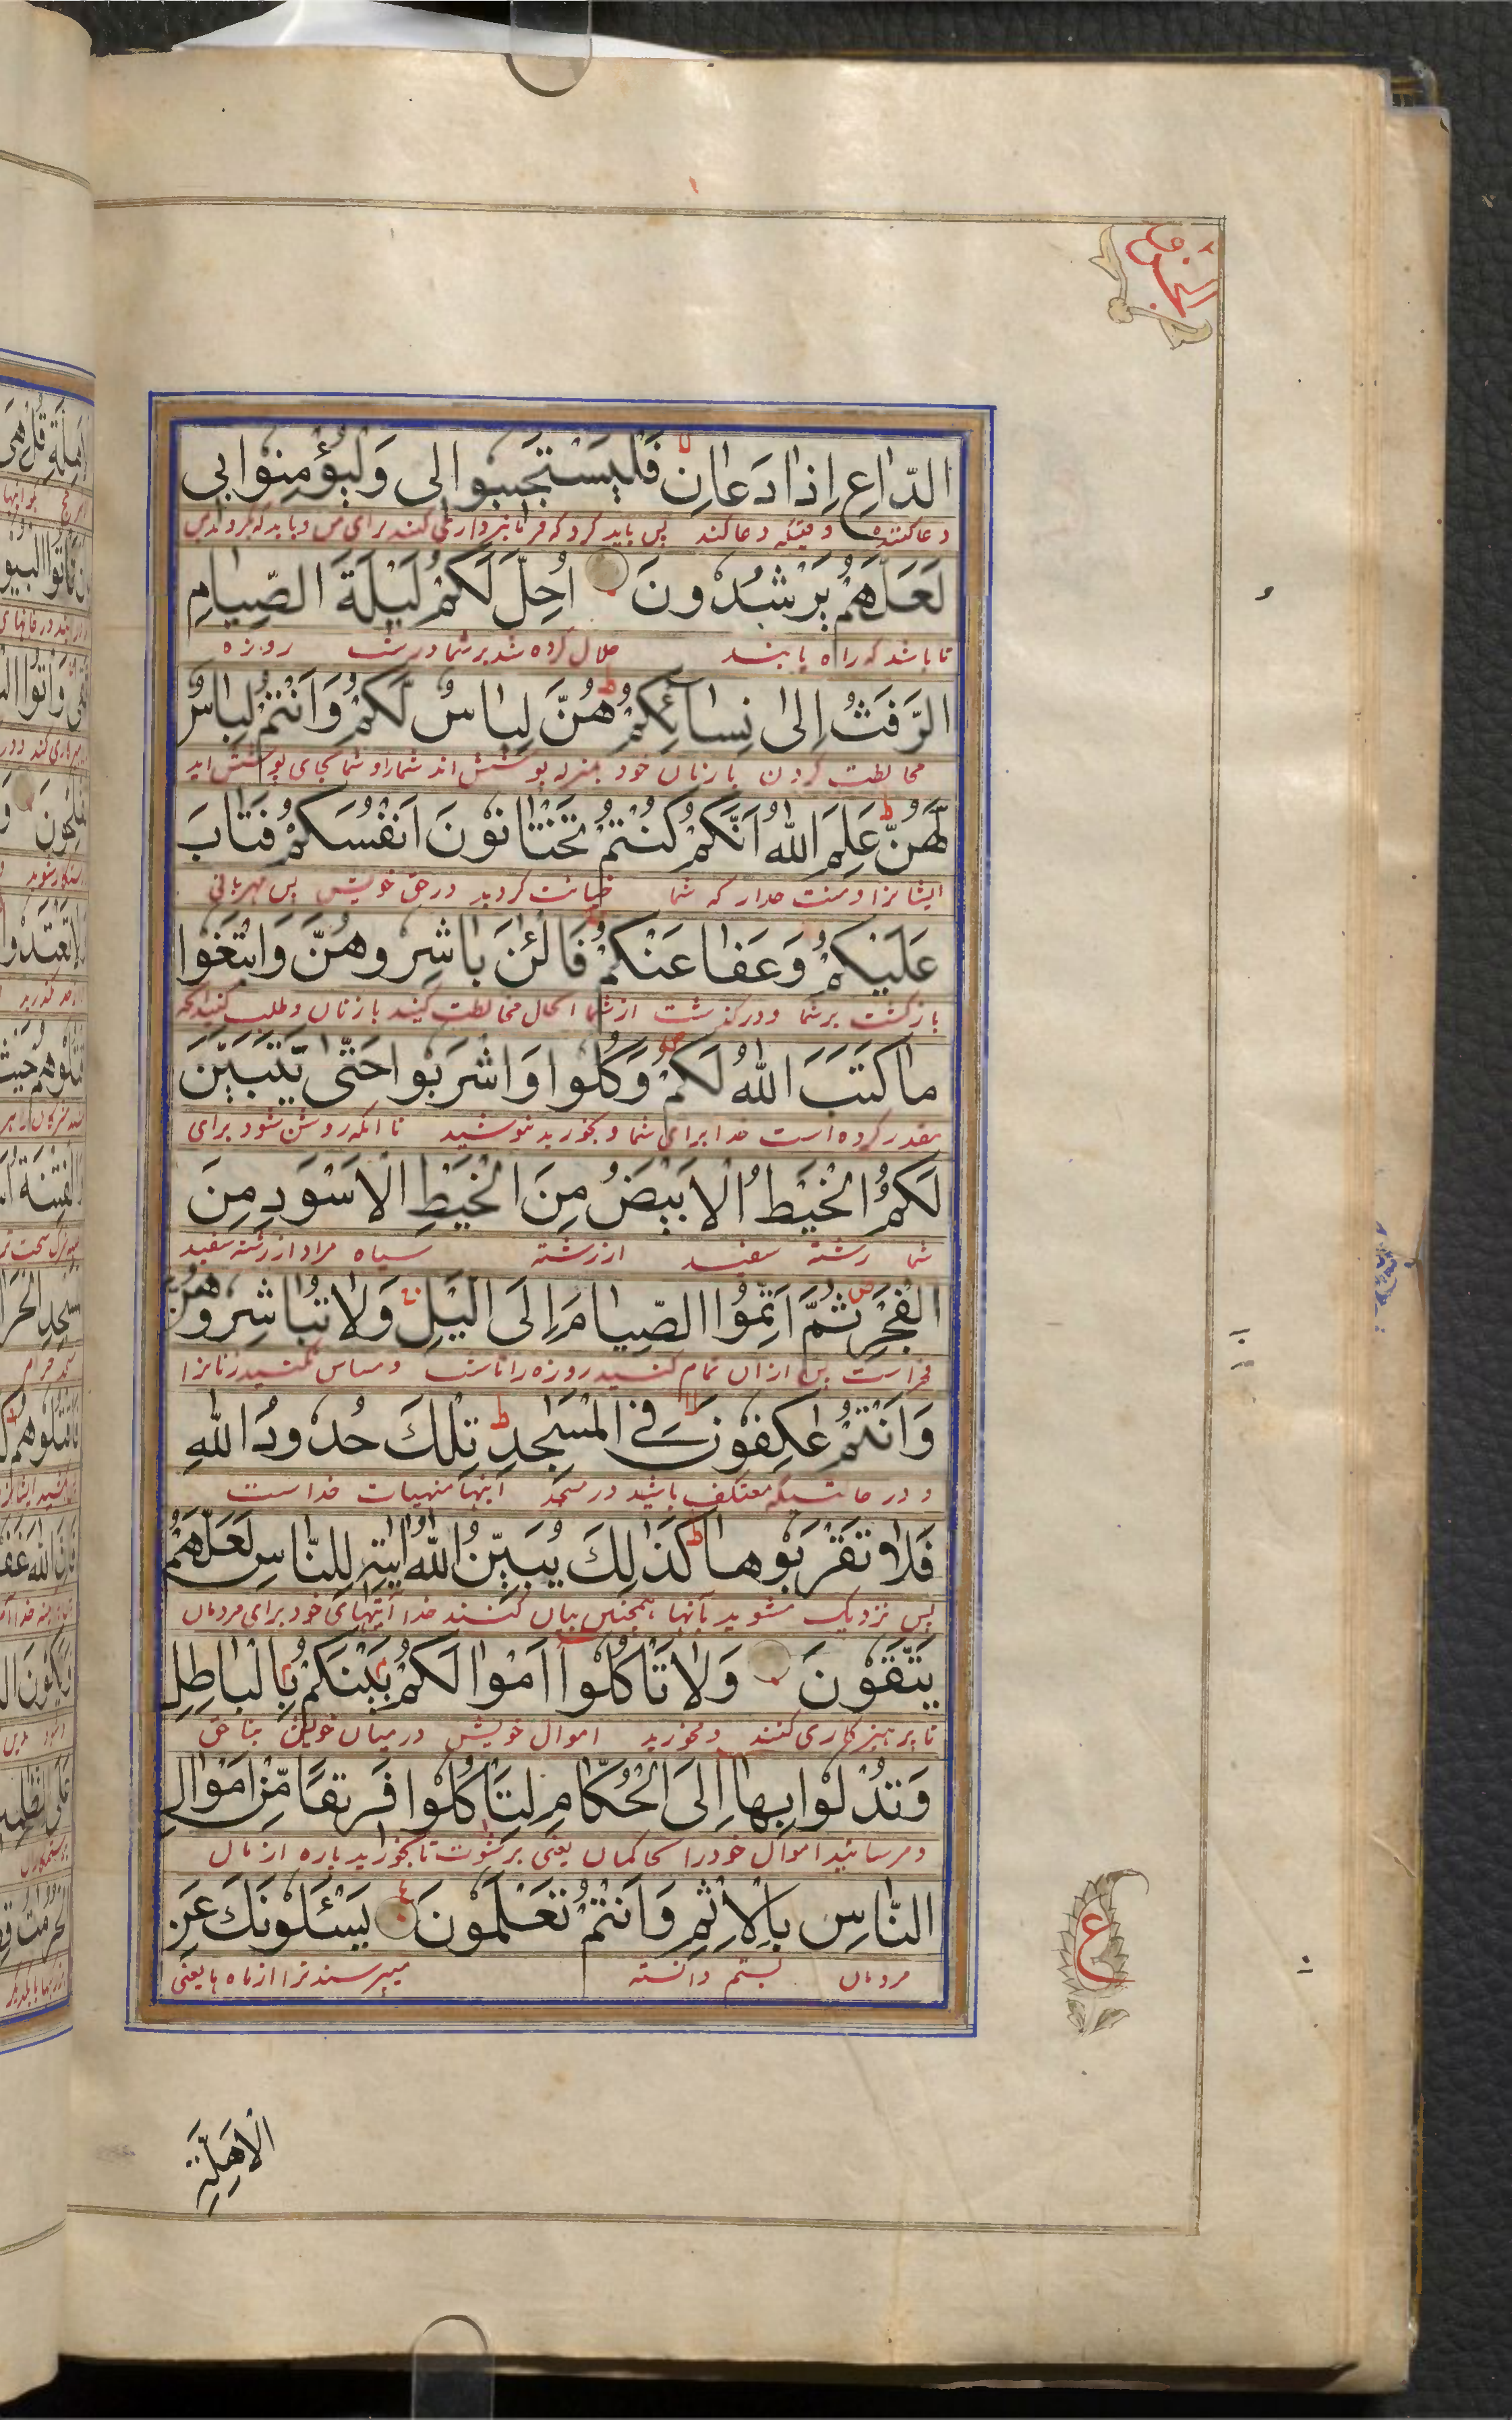 الجزو ٢
الدّٰاعِ اِذٰا دَعٰانِ فَلْيَسْتَجٖيبُوا لٖى وَلْيُؤْمِنُوا بٖى
دعا کننده وقتیکه دعا کند پس باید کرد که فرمانبرداری کنند برای من و باید که بگروند بمن
لَعَلَّهُمْ يَرْشُدُونَ اُحِلَّ لَكُمْ لَيْلَةَ الصِّيٰامِ
تا باشد که راه یابند حلال کرده شد بر شما در شب روزه
الرَّفَثُ اِلىٰ نِسٰآئِكُمْ هُنَّ لِبٰاسٌ لَكُمْ وَاَنْتُمْ لِبٰاسٌ
مخالطت کردن با زنان خود بمنزله پوشش اند شما را و شما بجای پوشش اید
لَهُنَّ عَلِمَ اللّٰهُ اَنَّكُمْ كُنْتُمْ تَخْتٰانُونَ اَنْفُسَكُمْ فَتٰابَ
ایشانرا دانست خدا که شما خیانت کردید در حق خویش پس مهربانی
عَلَيْكُمْ وَعَفٰا عَنْكُمْ فَالْئٰنَ بٰاشِرُوهُنَّ وَابْتَغُوا
بازگشت بر شما و درگذشت از شما الحال مخالطت کنید با زنان و طلب کنید آنچه
مٰا كَتَبَ اللّٰهُ لَكُمْ وَكُلُوا وَاشْرَبُوا حَتّٰى يَتَبَيَّنَ
مقدر کرده است خدا برای شما و بخورید بنوشید تا آنکه روشن شود برای
لَكُمُ الْخَيْطُ الْاَبْيَضُ مِنَ الْخَيْطِ الْاَسْوَدِ مِنَ
شما رشته سفید از رشته سیاه مراد از رشته سفید
الْفَجْرِ ثُمَّ اَتِمُّوا الصِّيٰامَ اِلَى الَّيْلِ وَلٰا تُبٰاشِرُوهُنَّ
فجر است پس از ان تمام کنید روزه را تا شب و مساس نکنید زنانرا
وَاَنْتُمْ عٰكِفُونَ فِى الْمَسٰجِدِ تِلْكَ حُدُودُ اللّٰهِ
و در حالتیکه معتکف باشید در مسجد اینها منهیات خداست
فَلٰا تَقْرَبُوهٰا كَذٰلِكَ يُبَيِّنُ اللّٰهُ اٰيٰتِهٖ لِلنّٰاسِ لَعَلَّهُمْ
پس نزدیک مشوید بآنها همچنین بیان کنند خدا آیتهای خود برای مردمان
يَتَّقُونَ وَلٰا تَاْكُلُوا اَمْوٰالَكُمْ بَيْنَكُمْ بِالْبٰاطِلِ
تا پرهیزکاری کنند و مخورید اموال خویش در میان خویش بناحق
وَتُدْلُوا بِهٰا اِلَى الْحُكّٰامِ لِتَاْكُلُوا فَرٖيقًا مِّنْ اَمْوٰالِ
و مرسانید اموال خود را بحاکمان یعنی برشوت تا بخورید پاره از مال
النّٰاسِ بِالْاِثْمِ وَاَنْتُمْ تَعْلَمُونَ يَسْئَلُونَكَ عَنِ
مردمان بستم دانسته میپرسند ترا از ماه ها یعنی
ع
الْاَهِلَّةِ